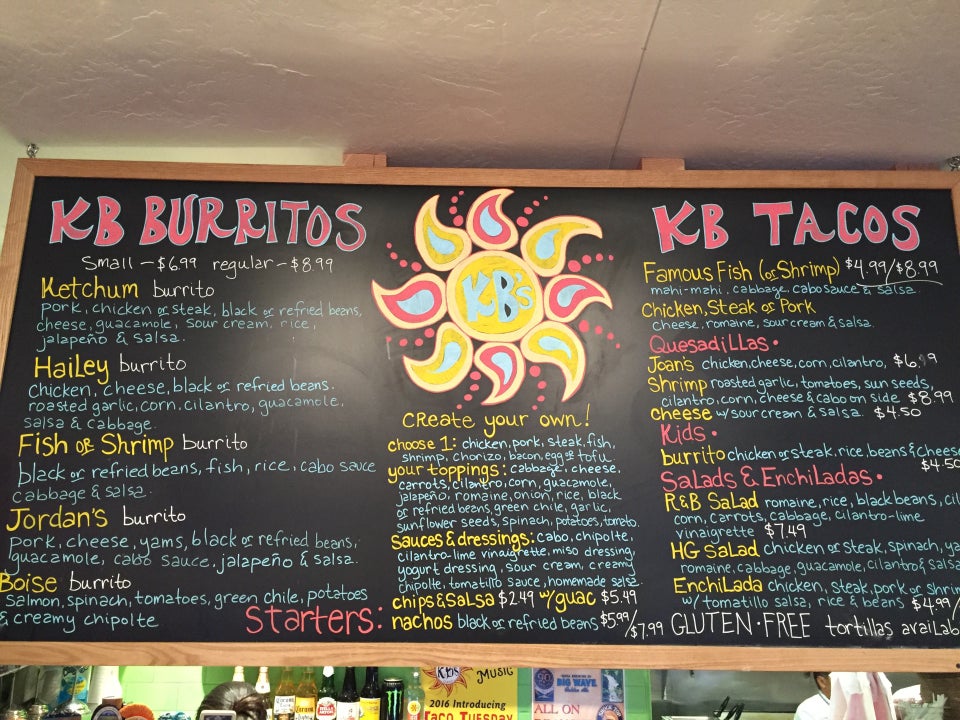 KB BURRITOS
Small - $6.99 regular - $8.99
Ketchum burrito
pork, chicken or steak, black or refried beans,
cheese, guacamole, sour cream, rice,
jalapeño & salsa.
Hailey burrito
chicken, cheese, black or refried beans.
roasted garlic, corn, cilantro, guacamole,
salsa & cabbage.
Fish or Shrimp burrito
black or refried beans, fish, rice, cabo sauce
cabbage & salsa.
Jordan's burrito
pork, cheese, yams, black or refried beans,
guacamole, cabo sauce, jalapeño & salsa.
Boise burrito
salmon, spinach, tomatoes, green chile, potatoes
& creamy chipolte
KB's
Create your own!
choose 1: chicken, pork, steak, fish,
shrimp, chorizo, bacon, egg or tofu
your toppings: cabbage, cheese,
carrots, cilantro, corn, guacamole,
jalapeño, romaine, onion, rice, black
or refried beans, green chile, garlic,
sunflower seeds, spinach, potatoes, tomato.
sauces & dressings: cabo, chipolte,
cilantro-lime vinaigrette, miso dressing,
yogurt dressing, sour cream, creamy
chipolte, tomatillo sauce, homemade salsa.
Starters:
chips & salsa $2.49 w/ guac $5.49
nachos black or refried beans $5.99/$7.99
KB TACOS
Famous Fish (or Shrimp) $4.99/$8.99
mahi-mahi, cabbage, cabo sauce & salsa.
Chicken, Steak or Pork
cheese, romaine, sour cream & salsa.
Quesadillas •
Joan's chicken, cheese, corn, cilantro,
Shrimp roasted garlic, tomatoes, sun seeds,
cilantro, corn, cheese & cabo on side $8.99
cheese w/ sour cream & salsa. $4.50
Kids •
burrito chicken or steak, rice, beans & cheese
$4.50
Salads & Enchiladas •
R&B Salad romaine, rice, black beans,
corn, carrots, cabbage, cilantro-lime
vinaigrette $7.49
HG Salad chicken or steak, spinach,
romaine, cabbage, guacamole, cilantro & salsa
Enchilada chicken, steak, pork or shrimp
w/ tomatillo salsa, rice & beans $4.99/
GLUTEN•FREE tortillas
KB's
MUSIC
2016 Introducing
TACO TUESDAY
BIG WAVE
ALL ON